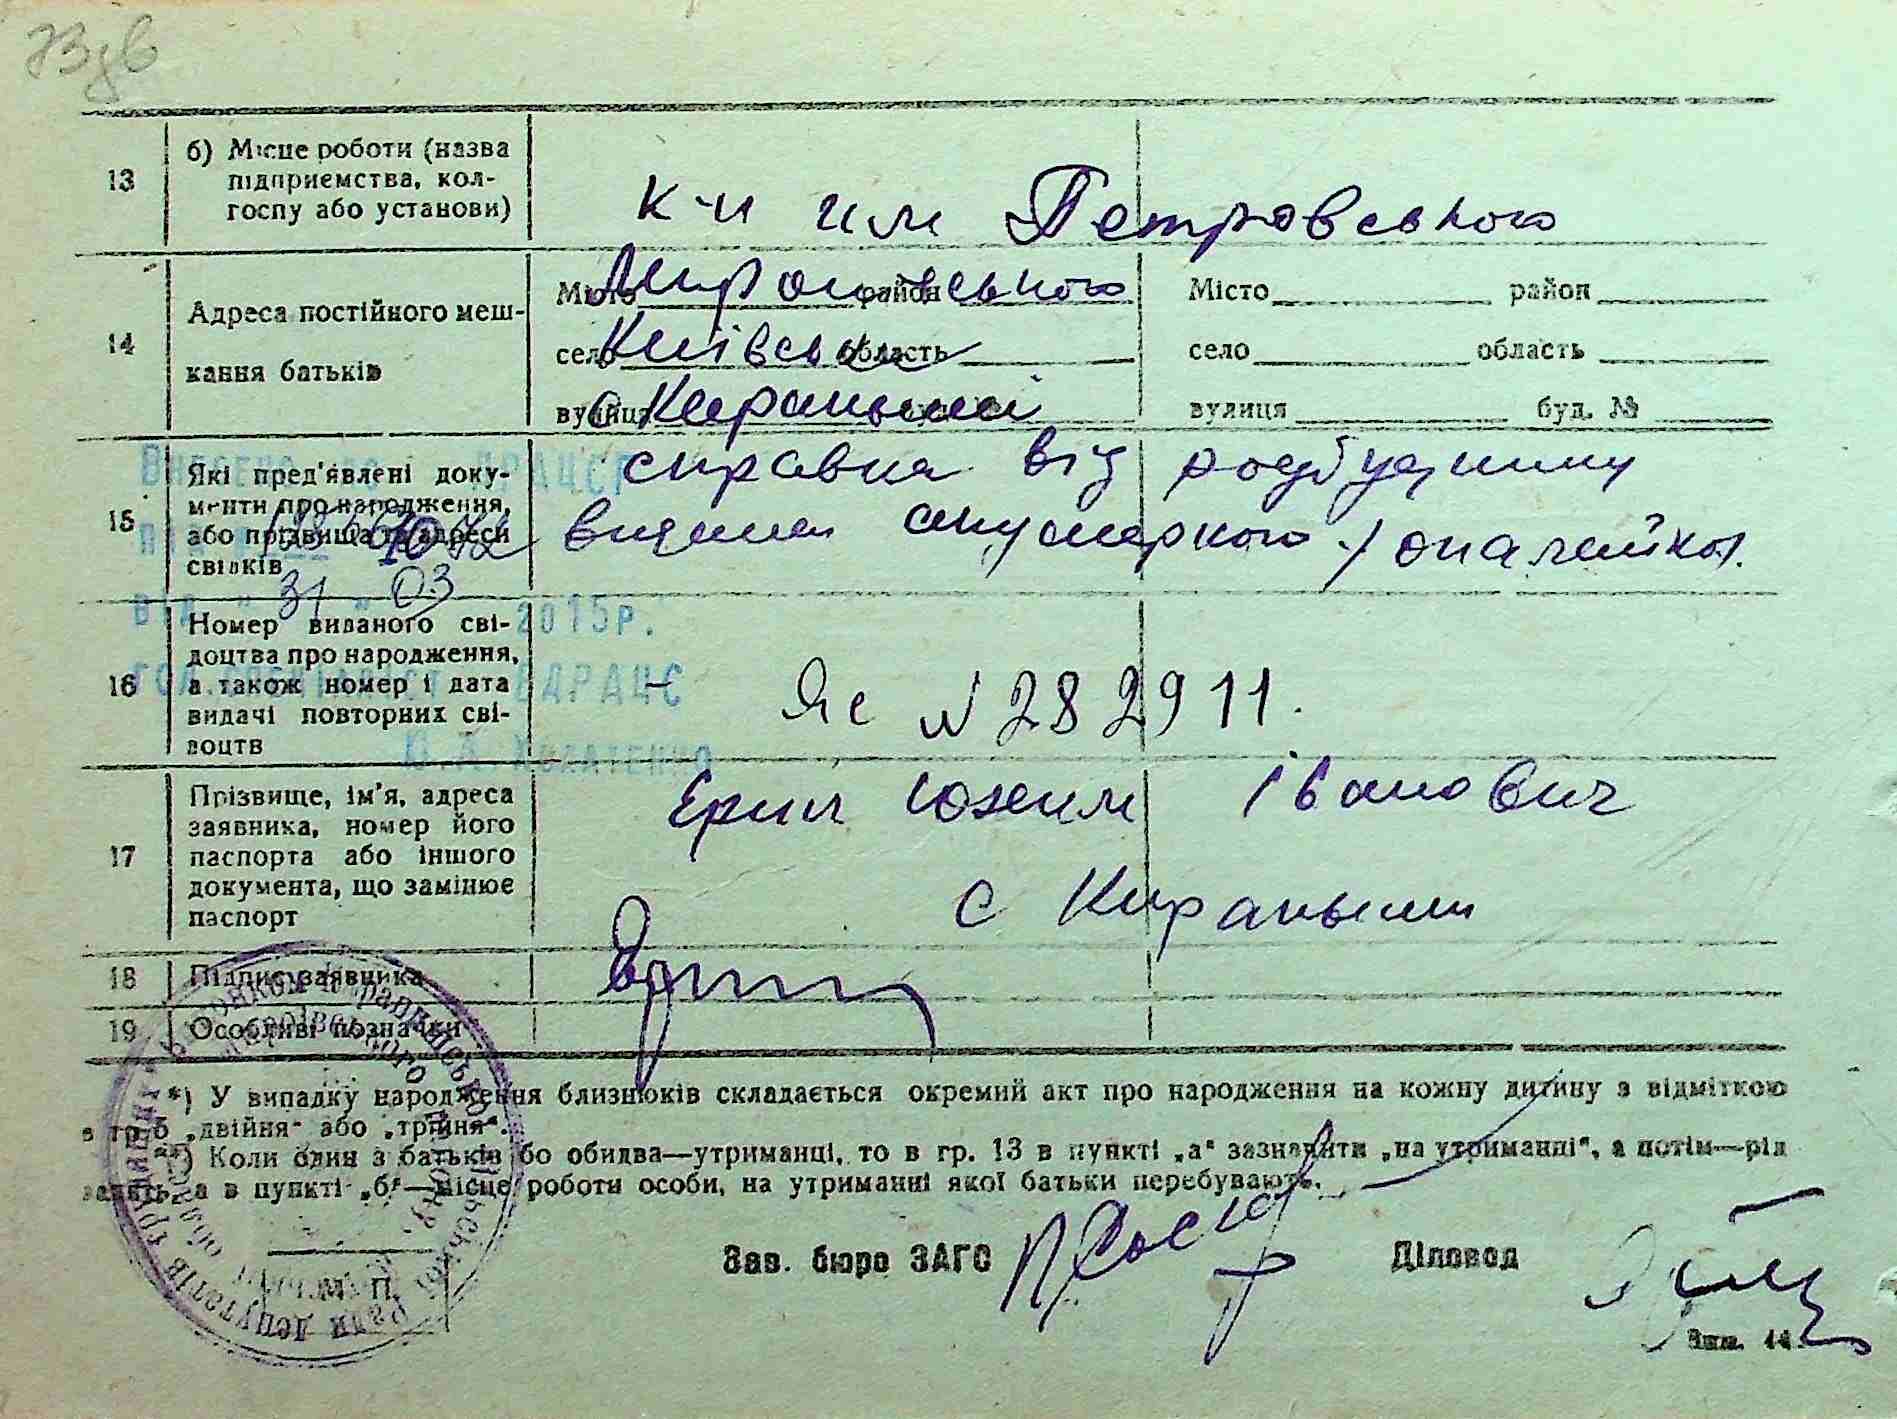 13 б) Місце роботи (назва
підприємства, кол-
госпу або установи)
к-п им Петровського
14 Адреса постійного меш-
кання батьків
Місто район
Миронівського
село область
Київська
вулиця
с Кирапьшлі
Місто район
село область
вулиця буд. №
15 Які пред'явлені доку-
менти про народження,
або прізвища та адреси
свідків
справка від родбудинку
видана акушеркою
31 03
2015р.
16 Номер виданого сві-
доцтва про народження,
а також номер і дата
видачі повторних сві-
доцтв
Яс № 282911.
17 Прізвище, ім'я, адреса
заявника, номер його
паспорта або іншого
документа, що замінює
паспорт
Іванович
с
18 Підпис заявника
19 Особливі позначки
*) У випадку народження близнюків складається окремий акт про народження на кожну дитину з відміткою
в гр. 5 „двійня" або „трійня".
**) Коли один з батьків або обидва—утриманці, то в гр. 13 в пункті „а" зазначити „на утриманні", а потім—рід
занять, а в пункті „б"—місце роботи особи, на утриманні якої батьки перебувають.
Зав. бюро ЗАГС Діловод
М. П.
Зам. 44